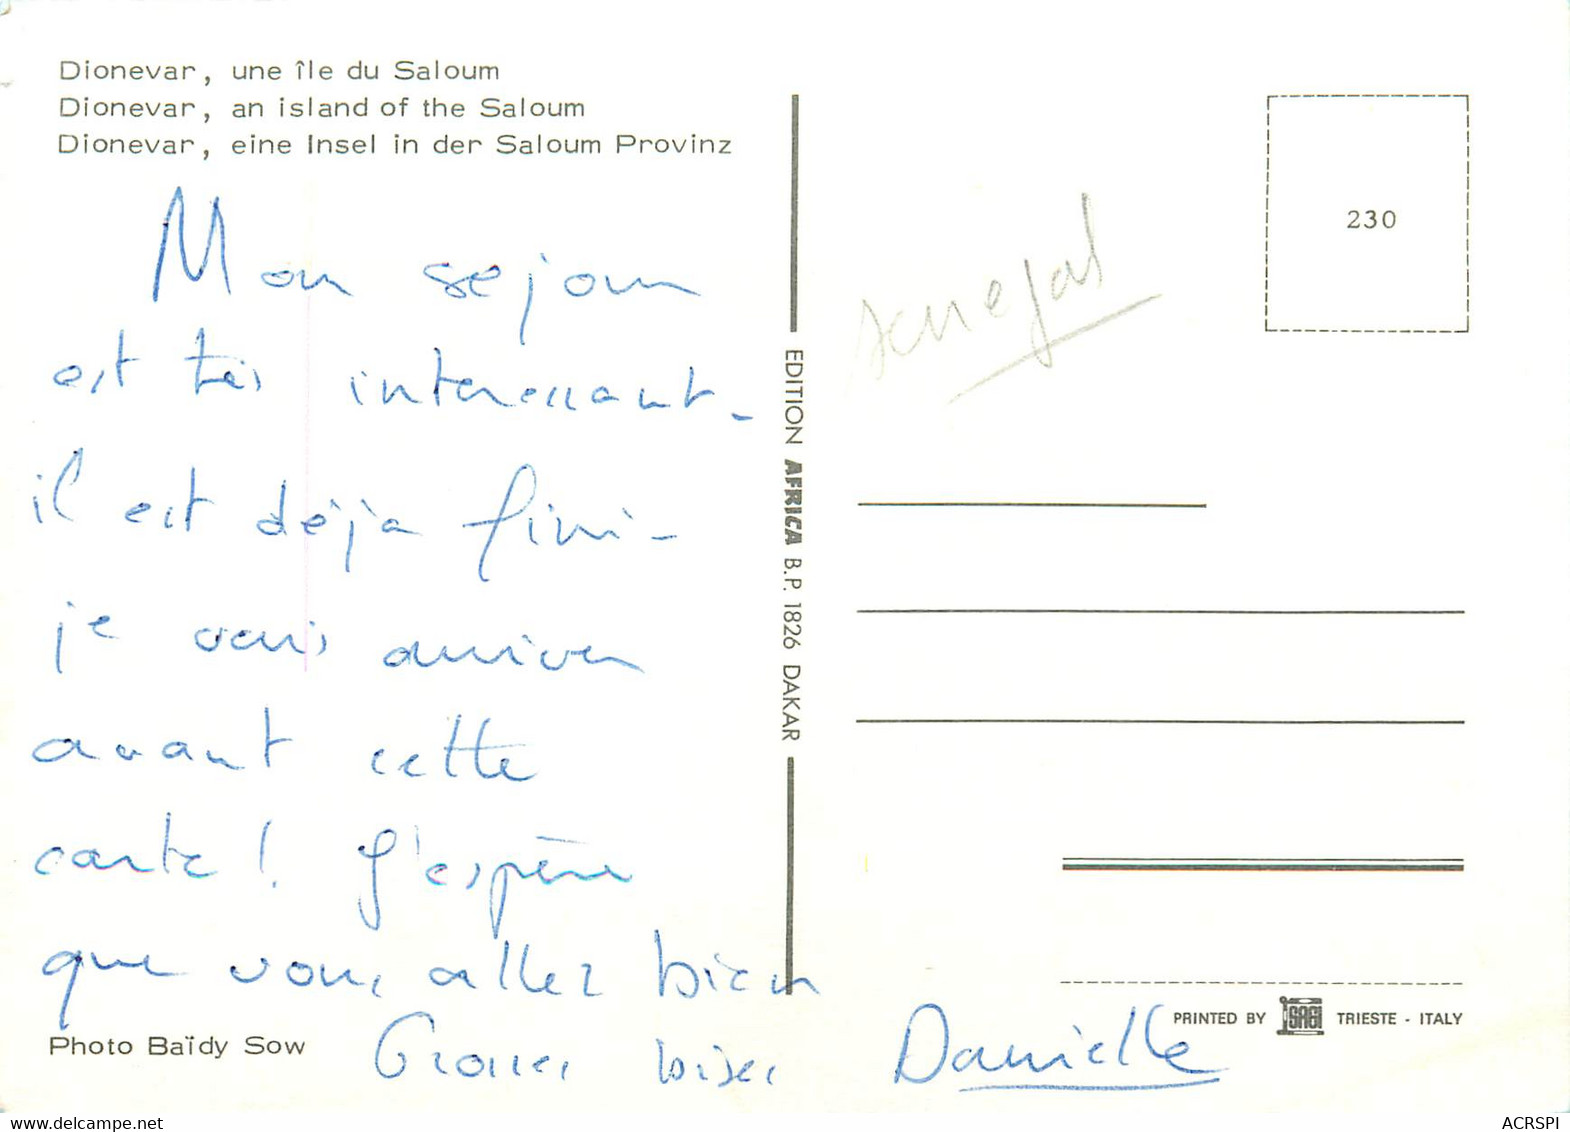 Dionevar, une île du Saloum
Dionevar, an island of the Saloum
Dionevar, eine Insel in der Saloum Provinz
Mon sejour
est très interessant -
il est déjà fini -
je vais arriver
avant cette
carte ! J'espère
que vous allez bien
Grosses bises Danielle
Photo Baïdy Sow
EDITION AFRICA B.P. 1826 DAKAR
senegal
230
PRINTED BY SAGI TRIESTE - ITALY
delcampe.net
ACRSPI